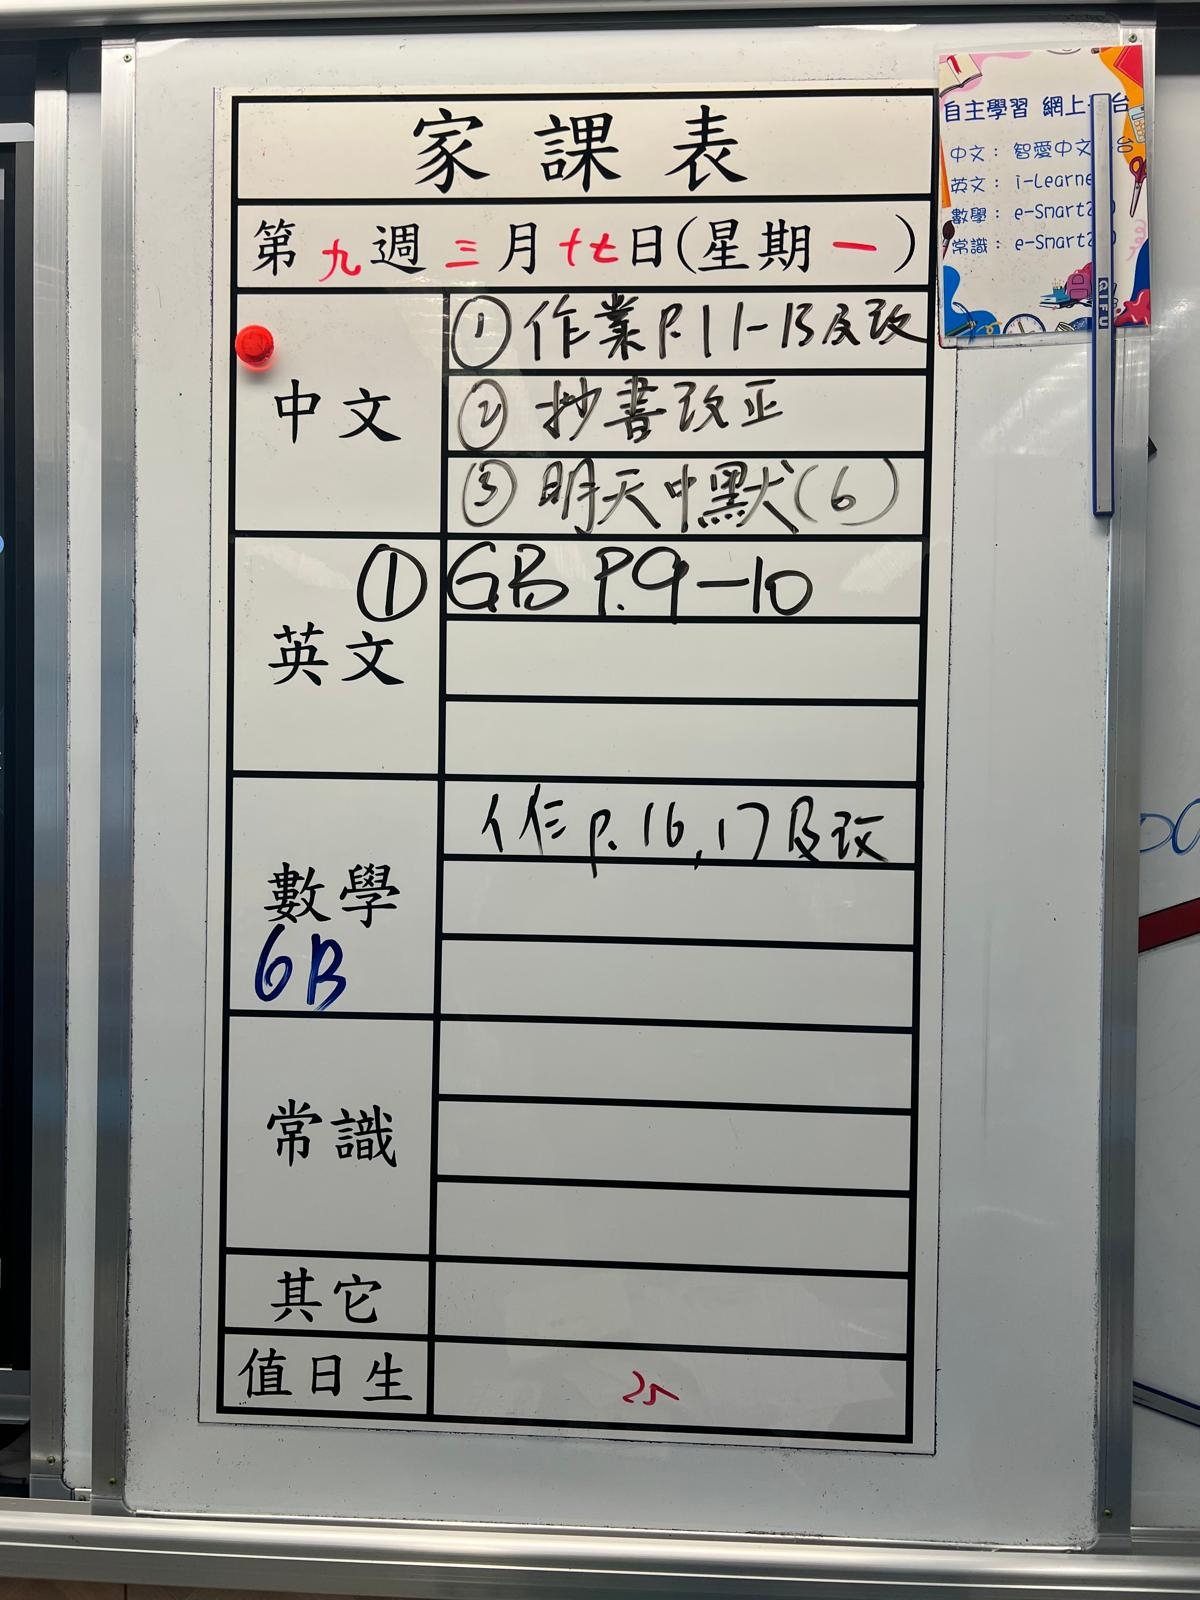 家課表
第九週三月十七日(星期一)
中文
① 作業P.11-13及改
② 抄書改正
③ 明天中默(6)
英文
① GB P.9-10
數學
6B
作 P.16,17及改
常識
其它
值日生
25
自主學習 網上 台
中文： 智愛中文 台
英文： i-Learne
數學： e-Smart
常識： e-Smart
QIFU